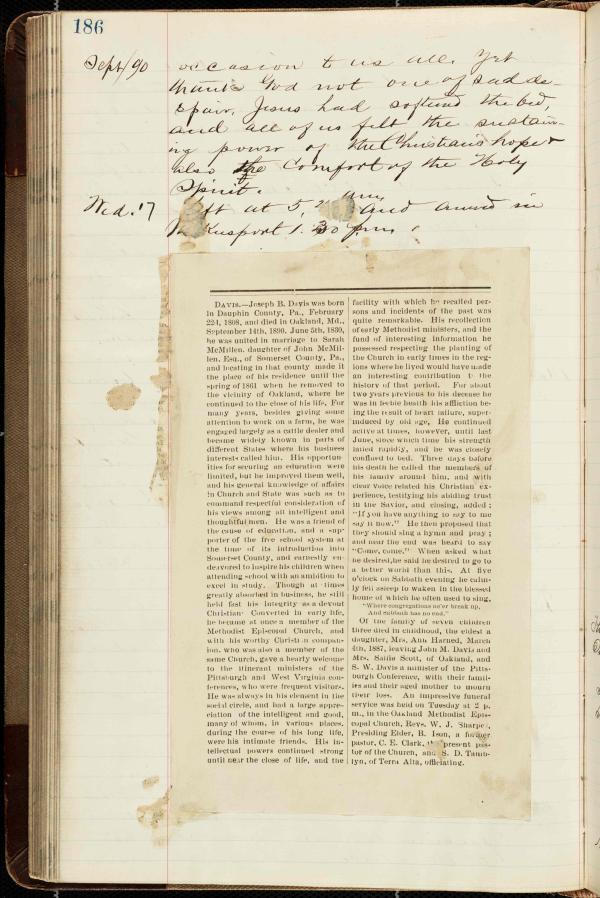 186
Sept/90 occasion to us all. Yet
thank God not one of sad de-
spair. Jesus had softend the bed,
and all of us felt the sustain-
ing power of the Christian's hope &
also the comfort of the Holy
Spirit.
Wed. 17 at 5, and arrived in
1. 30 p.m.
DAVIS.—Joseph B. Davis was born
in Dauphin County, Pa., February
22d, 1808, and died in Oakland, Md.,
September 14th, 1890. June 5th, 1839,
he was united in marriage to Sarah
McMillen, daughter of John McMil-
len, Esq., of Somerset County, Pa.,
and locating in that county made it
the place of his residence until the
spring of 1861 when he removed to
the vicinity of Oakland, where he
continued to the close of his life. For
many years, besides giving some
attention to work on a farm, he was
engaged largely as a cattle dealer and
became widely known in parts of
different States where his business
interests called him. His opportun-
ities for securing an education were
limited, but he improved them well,
and his general knowledge of affairs
in Church and State was such as to
command respectful consideration of
his views among all intelligent and
thoughtful men. He was a friend of
the cause of education, and a sup-
porter of the free school system at
the time of its introduction into
Somerset County, and earnestly en-
deavored to inspire his children when
attending school with an ambition to
excel in study. Though at times
greatly absorbed in business, he still
held fast his integrity as a devout
Christian. Converted in early life,
he became at once a member of the
Methodist Episcopal Church, and
with his worthy Christian compan-
ion, who was also a member of the
same Church, gave a hearty welcome
to the itinerant ministers of the
Pittsburgh and West Virginia con-
ferences, who were frequent visitors.
He was always in his element in the
social circle, and had a large appre-
ciation of the intelligent and good,
many of whom, in various places,
during the course of his long life,
were his intimate friends. His in-
tellectual powers continued strong
until near the close of life, and the
facility with which he recalled per-
sons and incidents of the past was
quite remarkable. His recollection
of early Methodist ministers, and the
fund of interesting information he
possessed respecting the planting of
the Church in early times in the reg-
ions where he lived would have made
an interesting contribution to the
history of that period. For about
two years previous to his decease he
was in feeble health his affliction be-
ing the result of heart failure, super-
induced by old age. He continued
active at times, however, until last
June, since which time his strength
failed rapidly, and he was closely
confined to bed. Three days before
his death he called the members of
his family around him, and with
clear voice related his Christian ex-
perience, testifying his abiding trust
in the Savior, and closing, added ;
"If you have anything to say to me
say it now." He then proposed that
they should sing a hymn and pray ;
and near the end was heard to say
"Come, come." When asked what
he desired, he said he desired to go to
a better world than this. At five
o'clock on Sabbath evening he calm-
ly fell asleep to waken in the blessed
home of which he often used to sing,
"Where congregations ne'er break up,
And Sabbath has no end."
Of the family of seven children
three died in childhood, the eldest a
daughter, Mrs. Ann Harned, March
4th, 1887, leaving John M. Davis and
Mrs. Sallie Scott, of Oakland, and
S. W. Davis a minister of the Pitts-
burgh Conference, with their famil-
ies and their aged mother to mourn
their loss. An impressive funeral
service was held on Tuesday at 2 p.
m., in the Oakland Methodist Epis-
copal Church, Revs. W. J. Sharpe,
Presiding Elder, B. Ison, a former
pastor, C. E. Clark, the present pas-
tor of the Church, and S. D. Tam-
lyn, of Terra Alta, officiating.